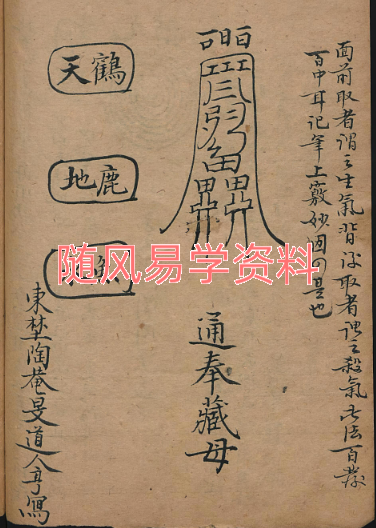 面前取者謂之生氣背後取者謂之殺氣此法百發
百中耳記筆上竅妙因可是也
通奉藏母
鶴天
鹿地
東埜陶菴旻道人亨寫
随风易学资料